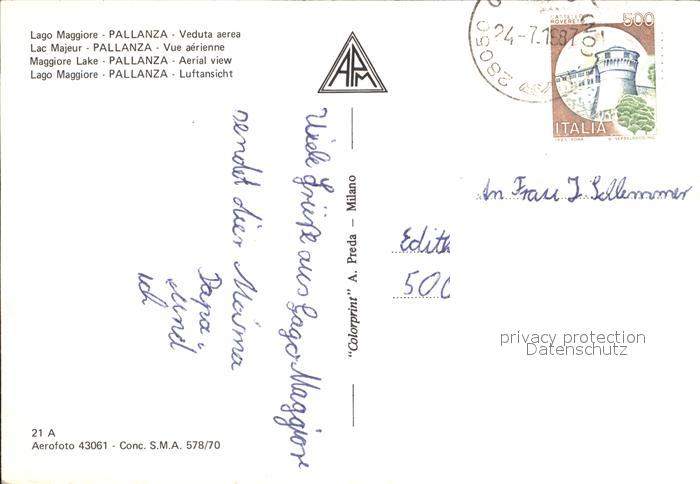 Lago Maggiore - PALLANZA - Veduta aerea
Lac Majeur - PALLANZA - Vue aérienne
Maggiore Lake - PALLANZA - Aerial view
Lago Maggiore - PALLANZA - Luftansicht
APM
28050
24-7.1987
CASTELLO
ROVERETO
500
ITALIA
Viele Grüße aus Lago Maggiore
sendet dier Mama
Papa,
und
ich
"Colorprint" A. Preda - Milano
An Frau J. Schlemmer
Edith
500
privacy protection
Datenschutz
21 A
Aerofoto 43061 - Conc. S.M.A. 578/70